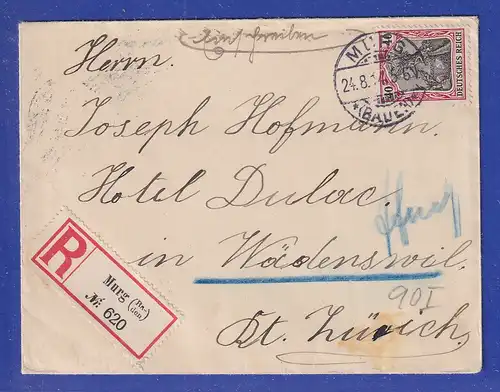 Einschreiben
MURG
24.8.1
*(BADEN)*
40
DEUTSCHES REICH
Herrn.
Joseph Hofmann.
Hotel Dulac
in Wädenswil.
Kt. Zürich.
R
Murg (Ba-
den)
№ 620
90I